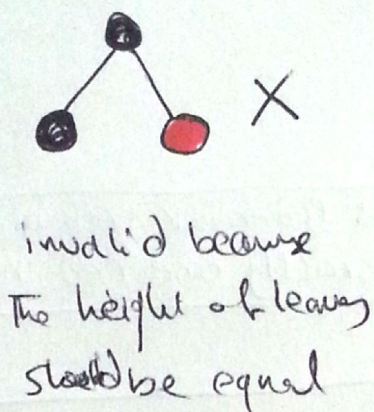 invalid because
The height of leaves
should be equal